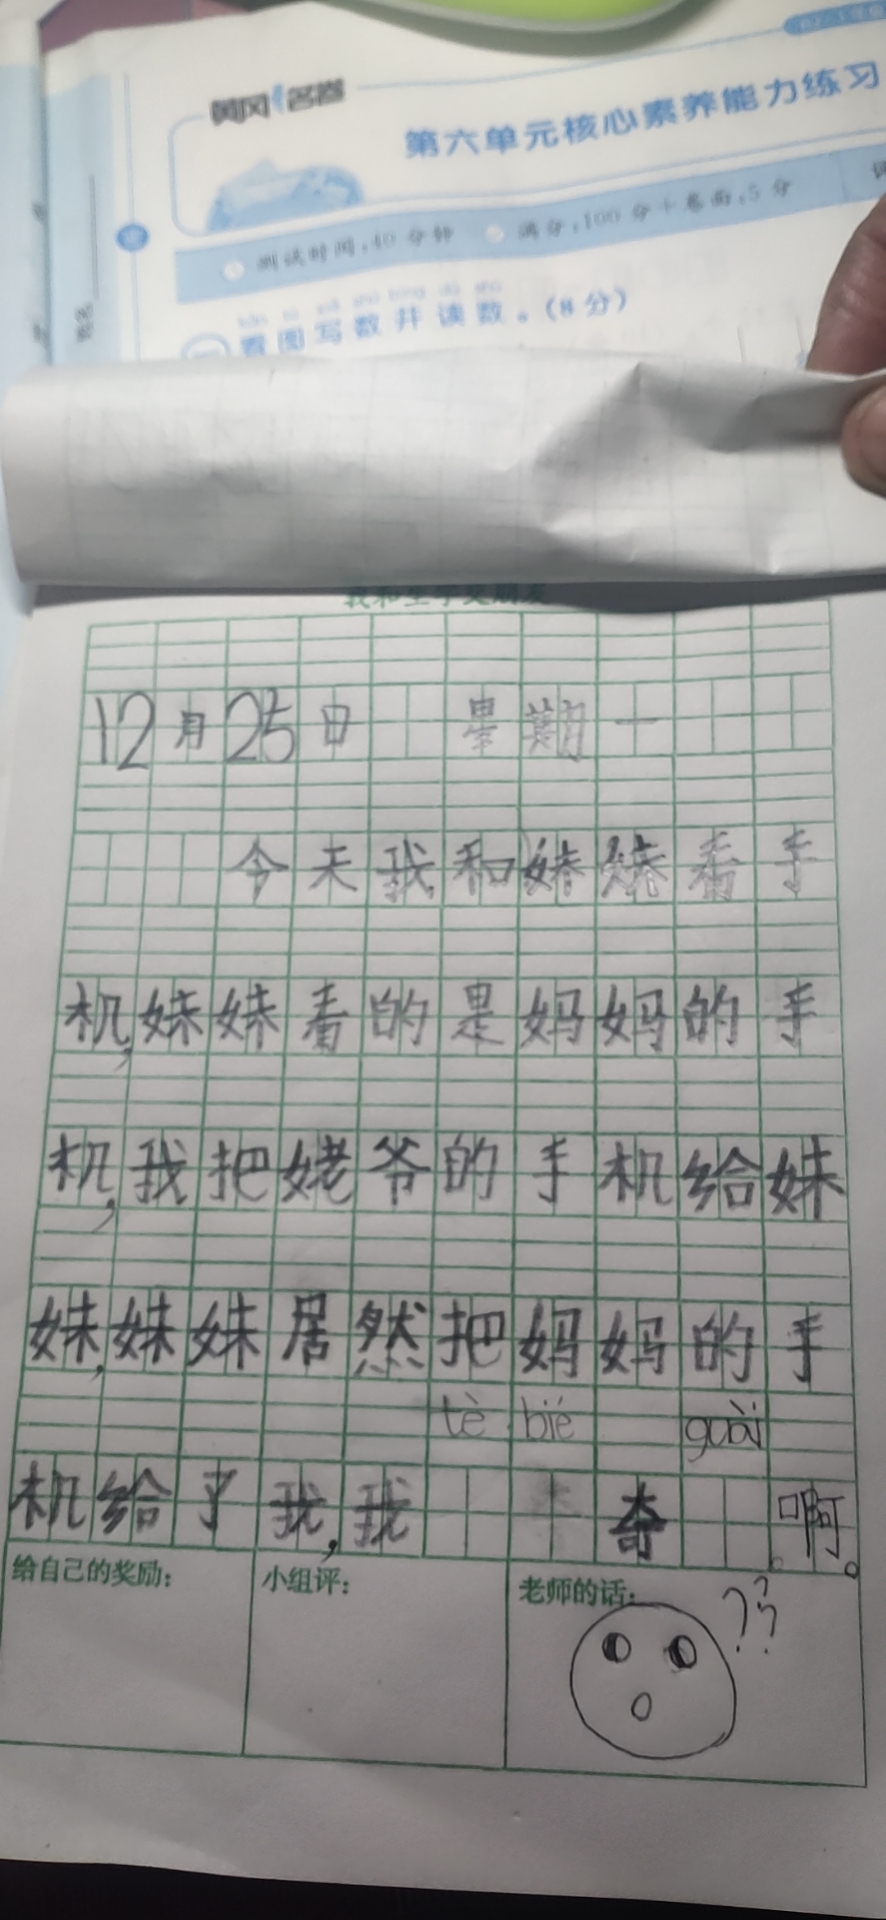 黄冈名卷
第六单元核心素养能力练习
测试时间:40分钟 满分:100分+卷面:5分
看图写数并读数。(8分)
我和生字交朋友
12月25日 星期一
今天我和妹妹看手
机,妹妹看的是妈妈的手
机,我把姥爷的手机给妹
妹,妹妹居然把妈妈的手
tè bié guài
机给了我,我 奇 啊。
给自己的奖励: 小组评: 老师的话:
???